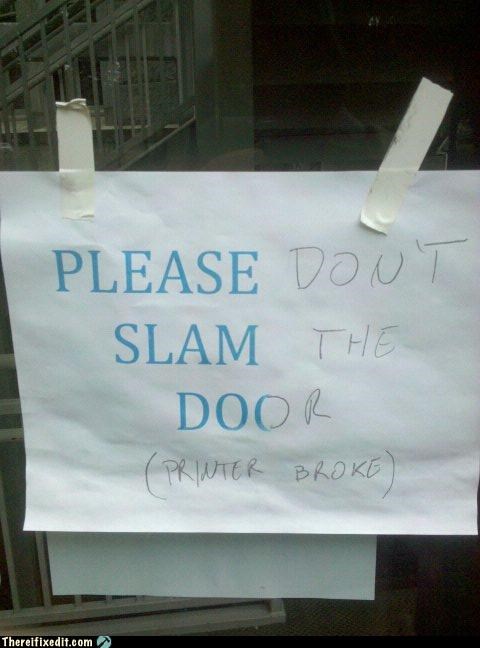 PLEASE DON'T
SLAM THE
DOOR
(PRINTER BROKE)
Thereifixedit.com